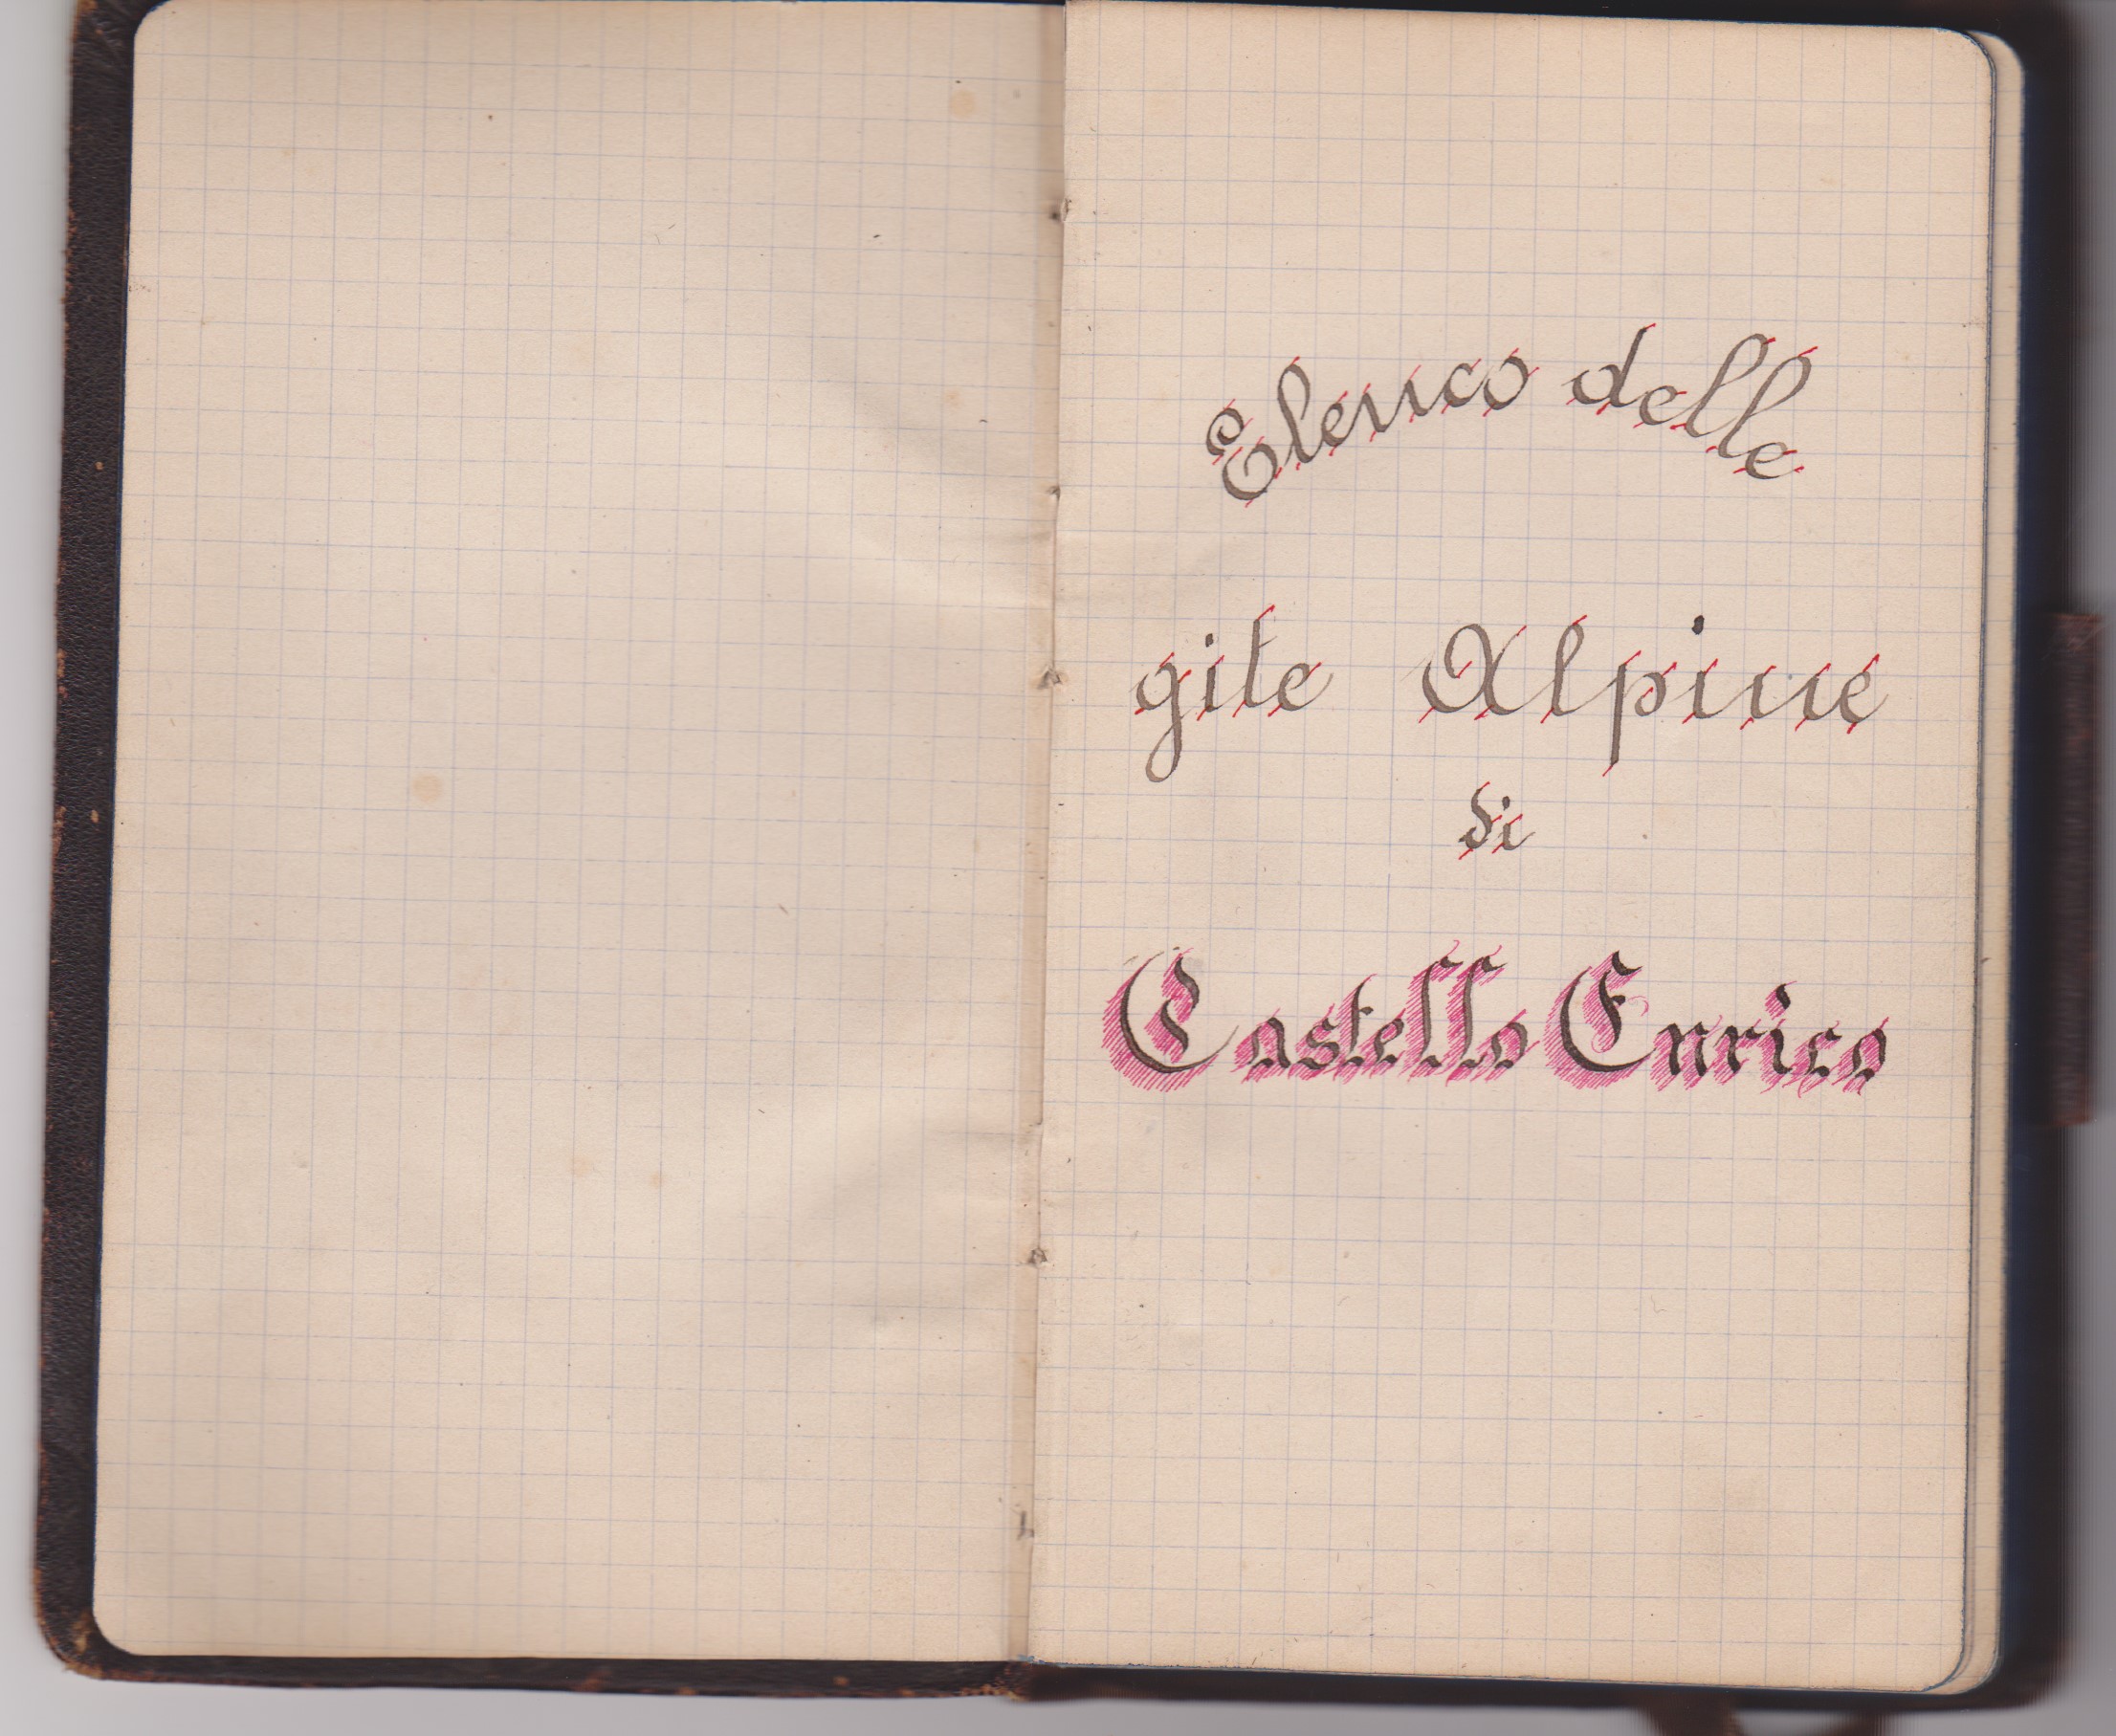 Elenco delle
gite Alpine
di
Castello Enrico